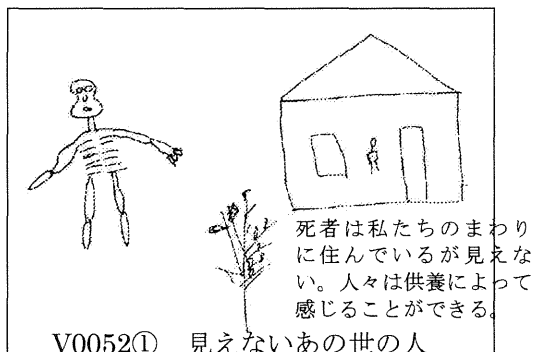 死者は私たちのまわり
に住んでいるが見えな
い。人々は供養によって
感じることができる。
V0052① 見えないあの世の人